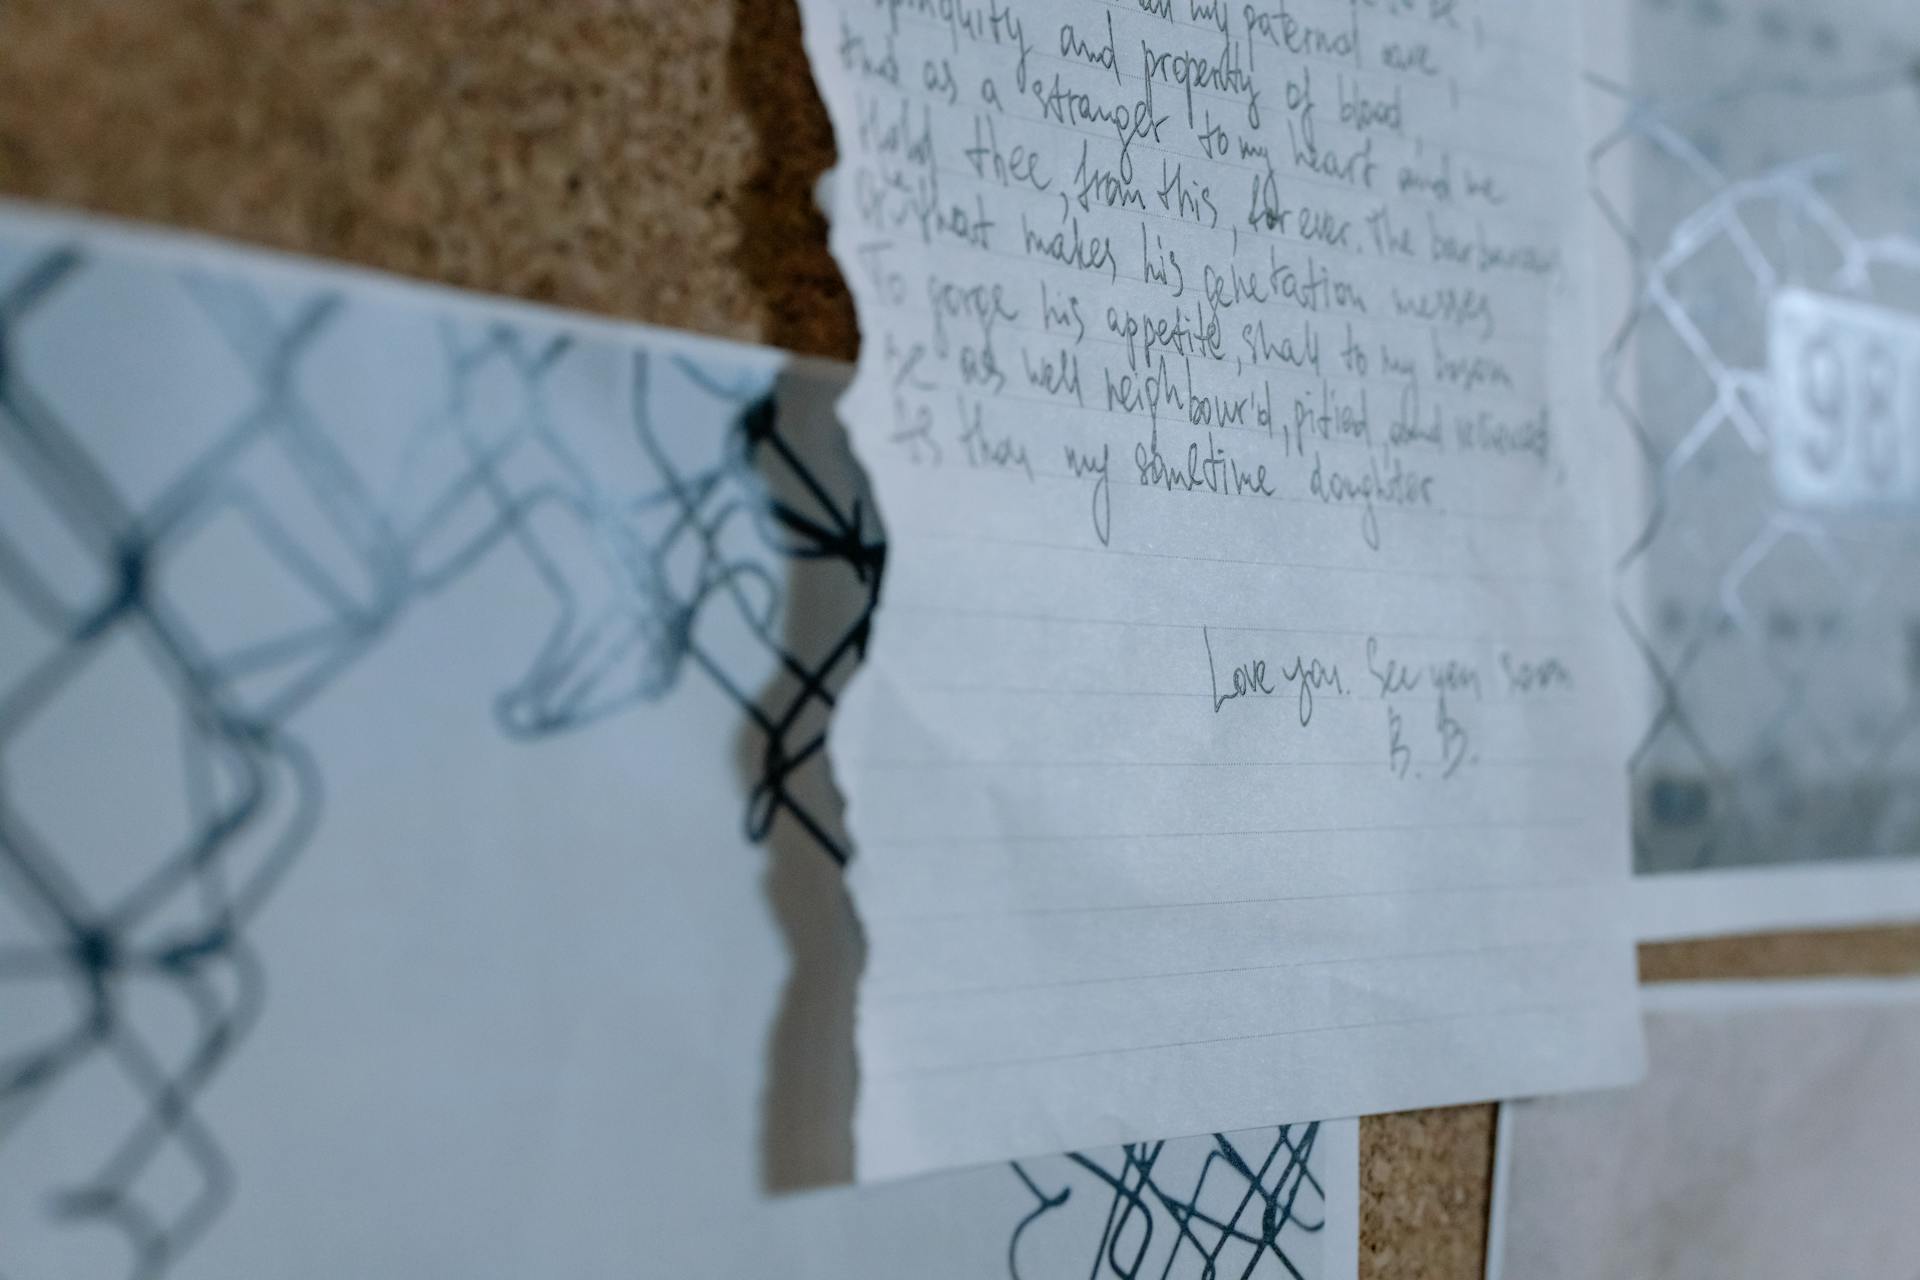 all my paternal care,
propinquity and property of blood,
And as a stranger to my heart and me
Hold thee, from this, for ever. The barbarous
Or that makes his generation messes
To gorge his appetite, shall to my bosom
be as well neighbour'd, pitied, and relieved,
As thou my sometime daughter.
Love you. See you soon
B. B.
98